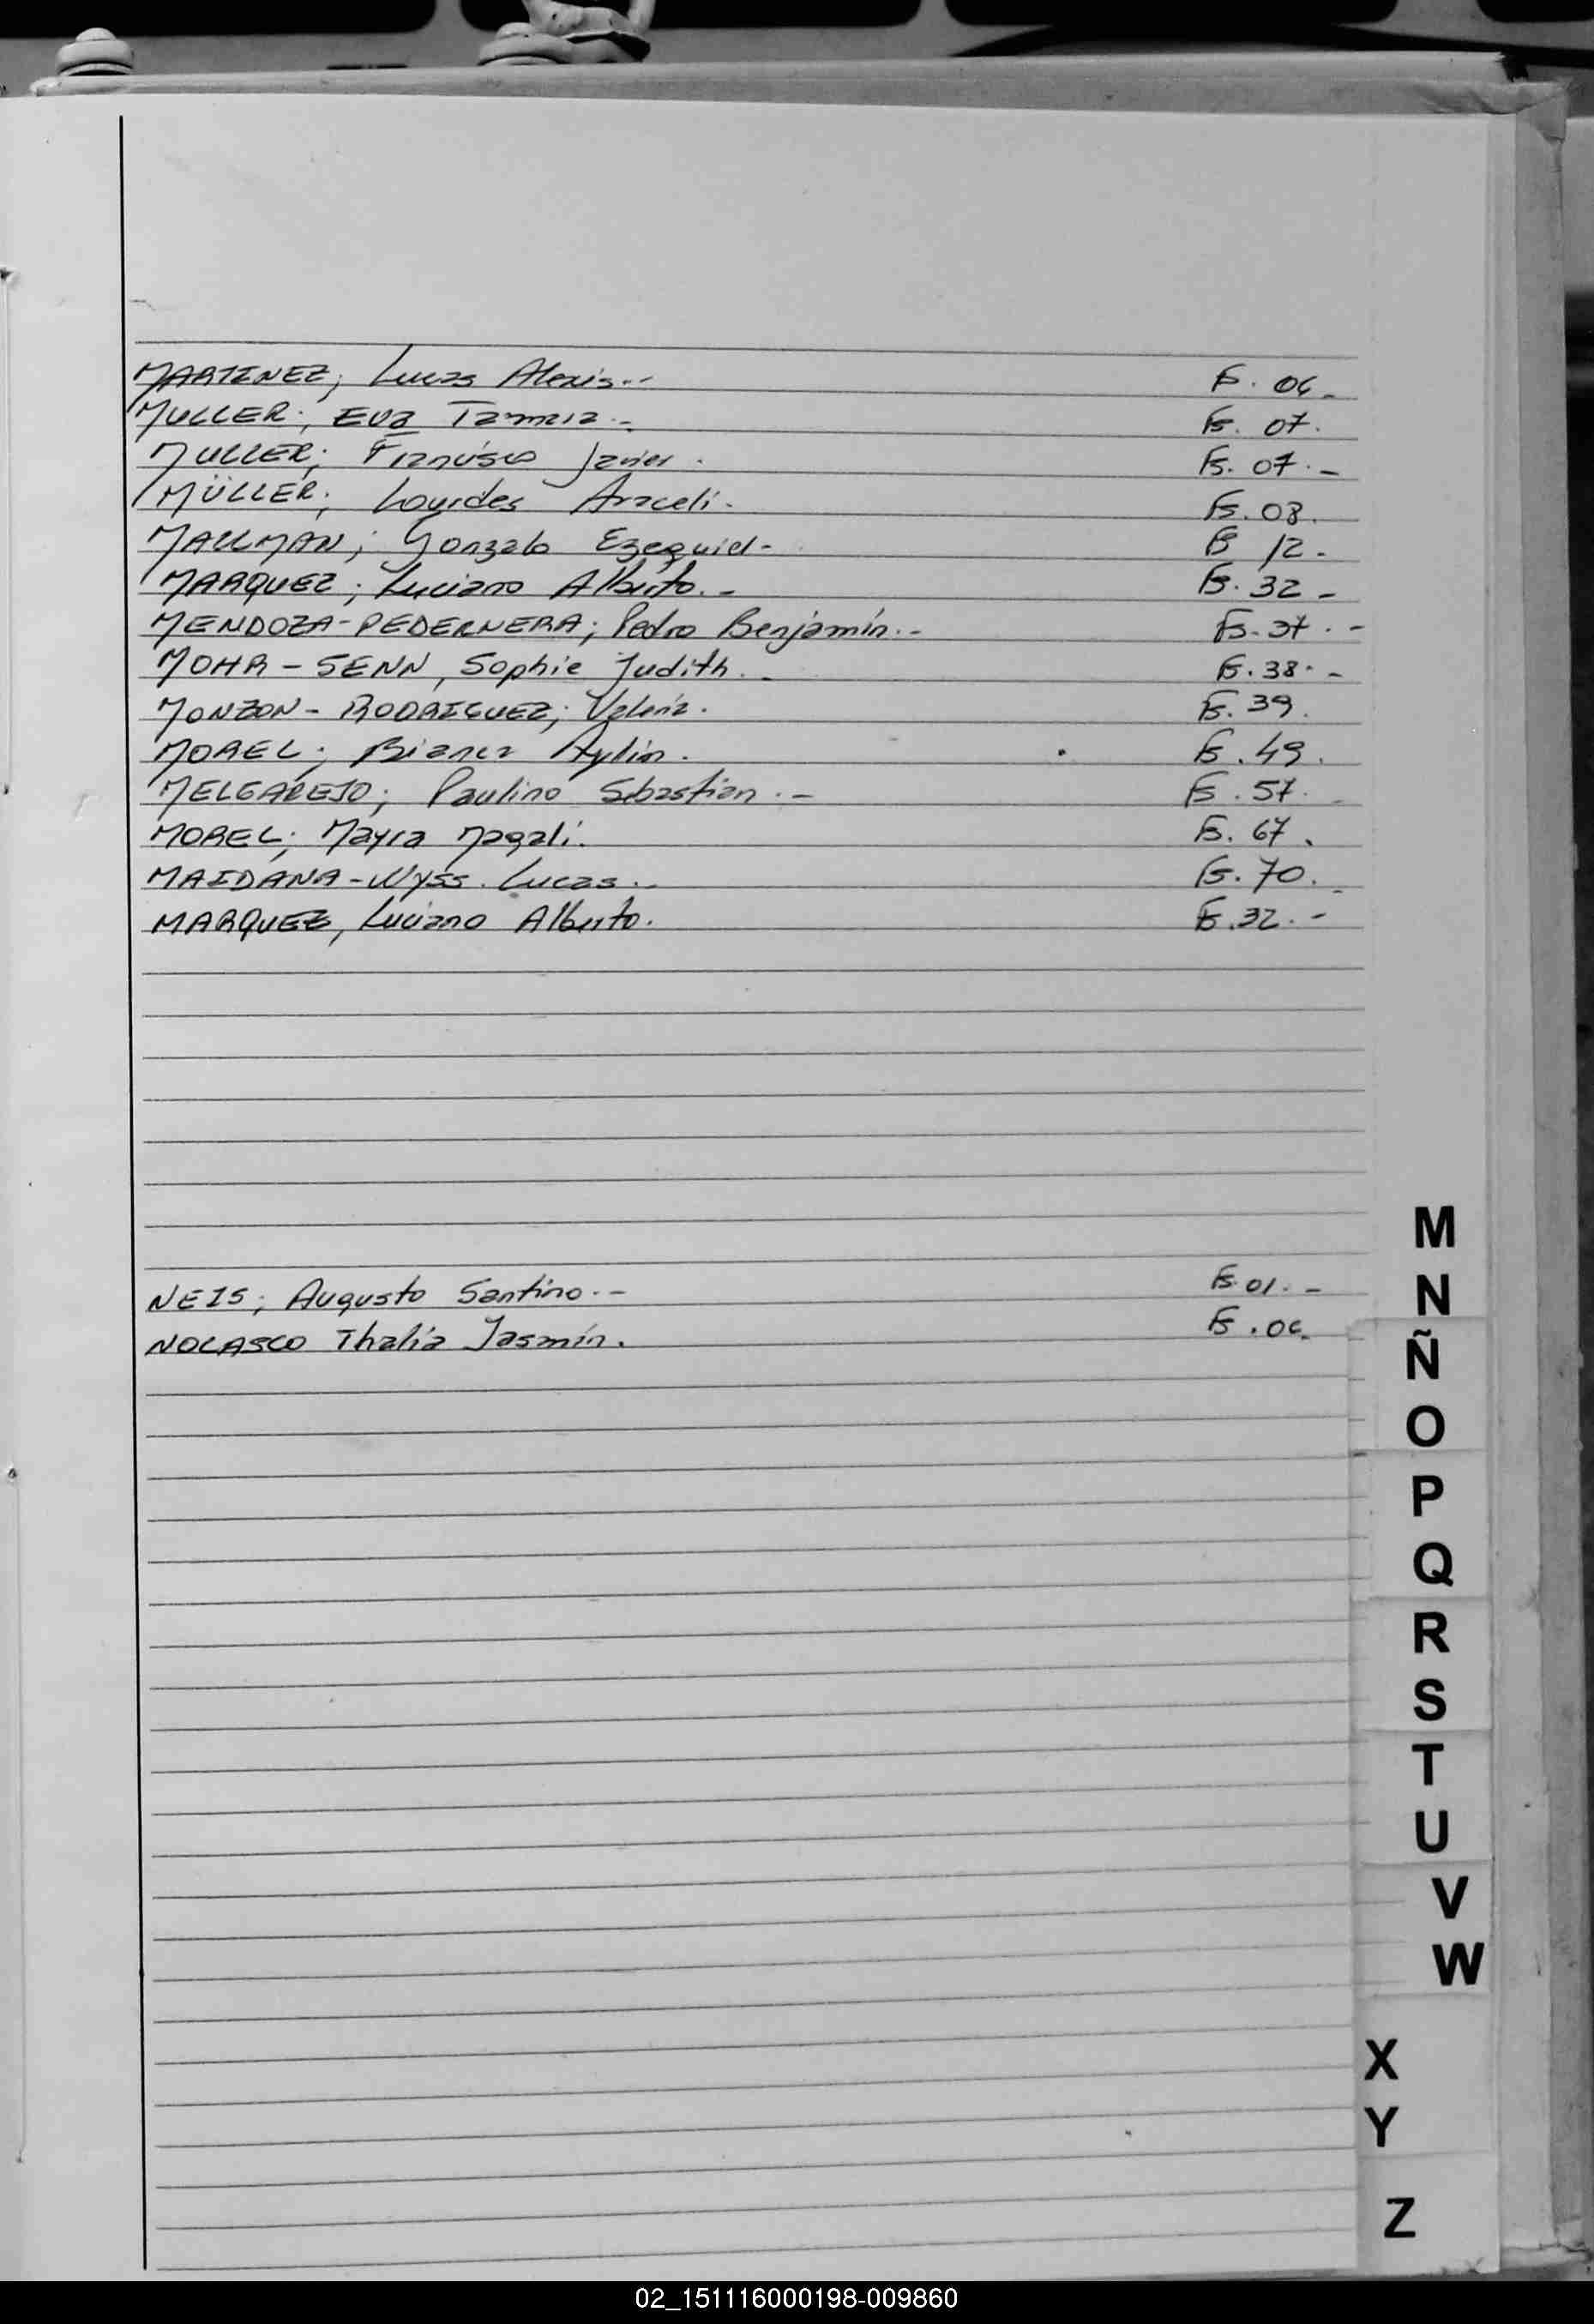 MARTINEZ; Lucas Alexis.- Fs. 06.
MULLER; Eva Tamara.- Fs. 07.
MULLER; Francisco Javier. Fs. 07.-
MÜLLER; Lourdes Araceli. Fs. 08.
MALLMAN; Gonzalo Ezequiel- Fs 12.-
MARQUEZ; Luciano Alberto.- Fs. 32-
MENDOZA-PEDERNERA; Pedro Benjamín.- Fs. 37.-
MOHR-SENN, Sophie Judith.- Fs. 38.-
MONZON-RODRIGUEZ; Valeria. Fs. 39.
MOREL; Bianca Aylin. Fs. 49.
MELGAREJO; Paulino Sebastian.- Fs. 57.
MOREL; Mayra Magali. Fs. 67.
MAIDANA-Wyss. Lucas.- Fs. 70.-
MARQUEZ, Luciano Alberto. Fs. 32.-
NEIS; Augusto Santino.- Fs. 01.-
NOLASCO Thalía Jasmín. Fs. 06.
M
N
Ñ
O
P
Q
R
S
T
U
V
W
X
Y
Z
02_151116000198-009860